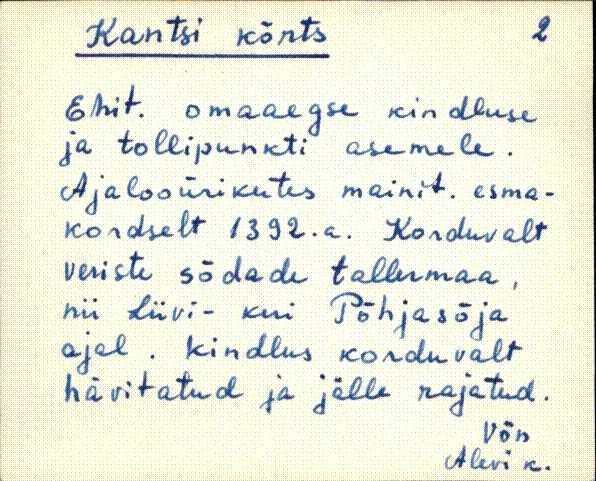 Kantsi kõrts 2
Ehit. omaaegse kindluse
ja tollipunkti asemele.
Ajalooürikutes mainit. esma-
kordselt 1392.a. Korduvalt
veriste sõdade tallermaa,
nii Liivi- kui Põhjasõja
ajal. Kindlus korduvalt
hävitatud ja jälle rajatud.
Võn
Alevi k.